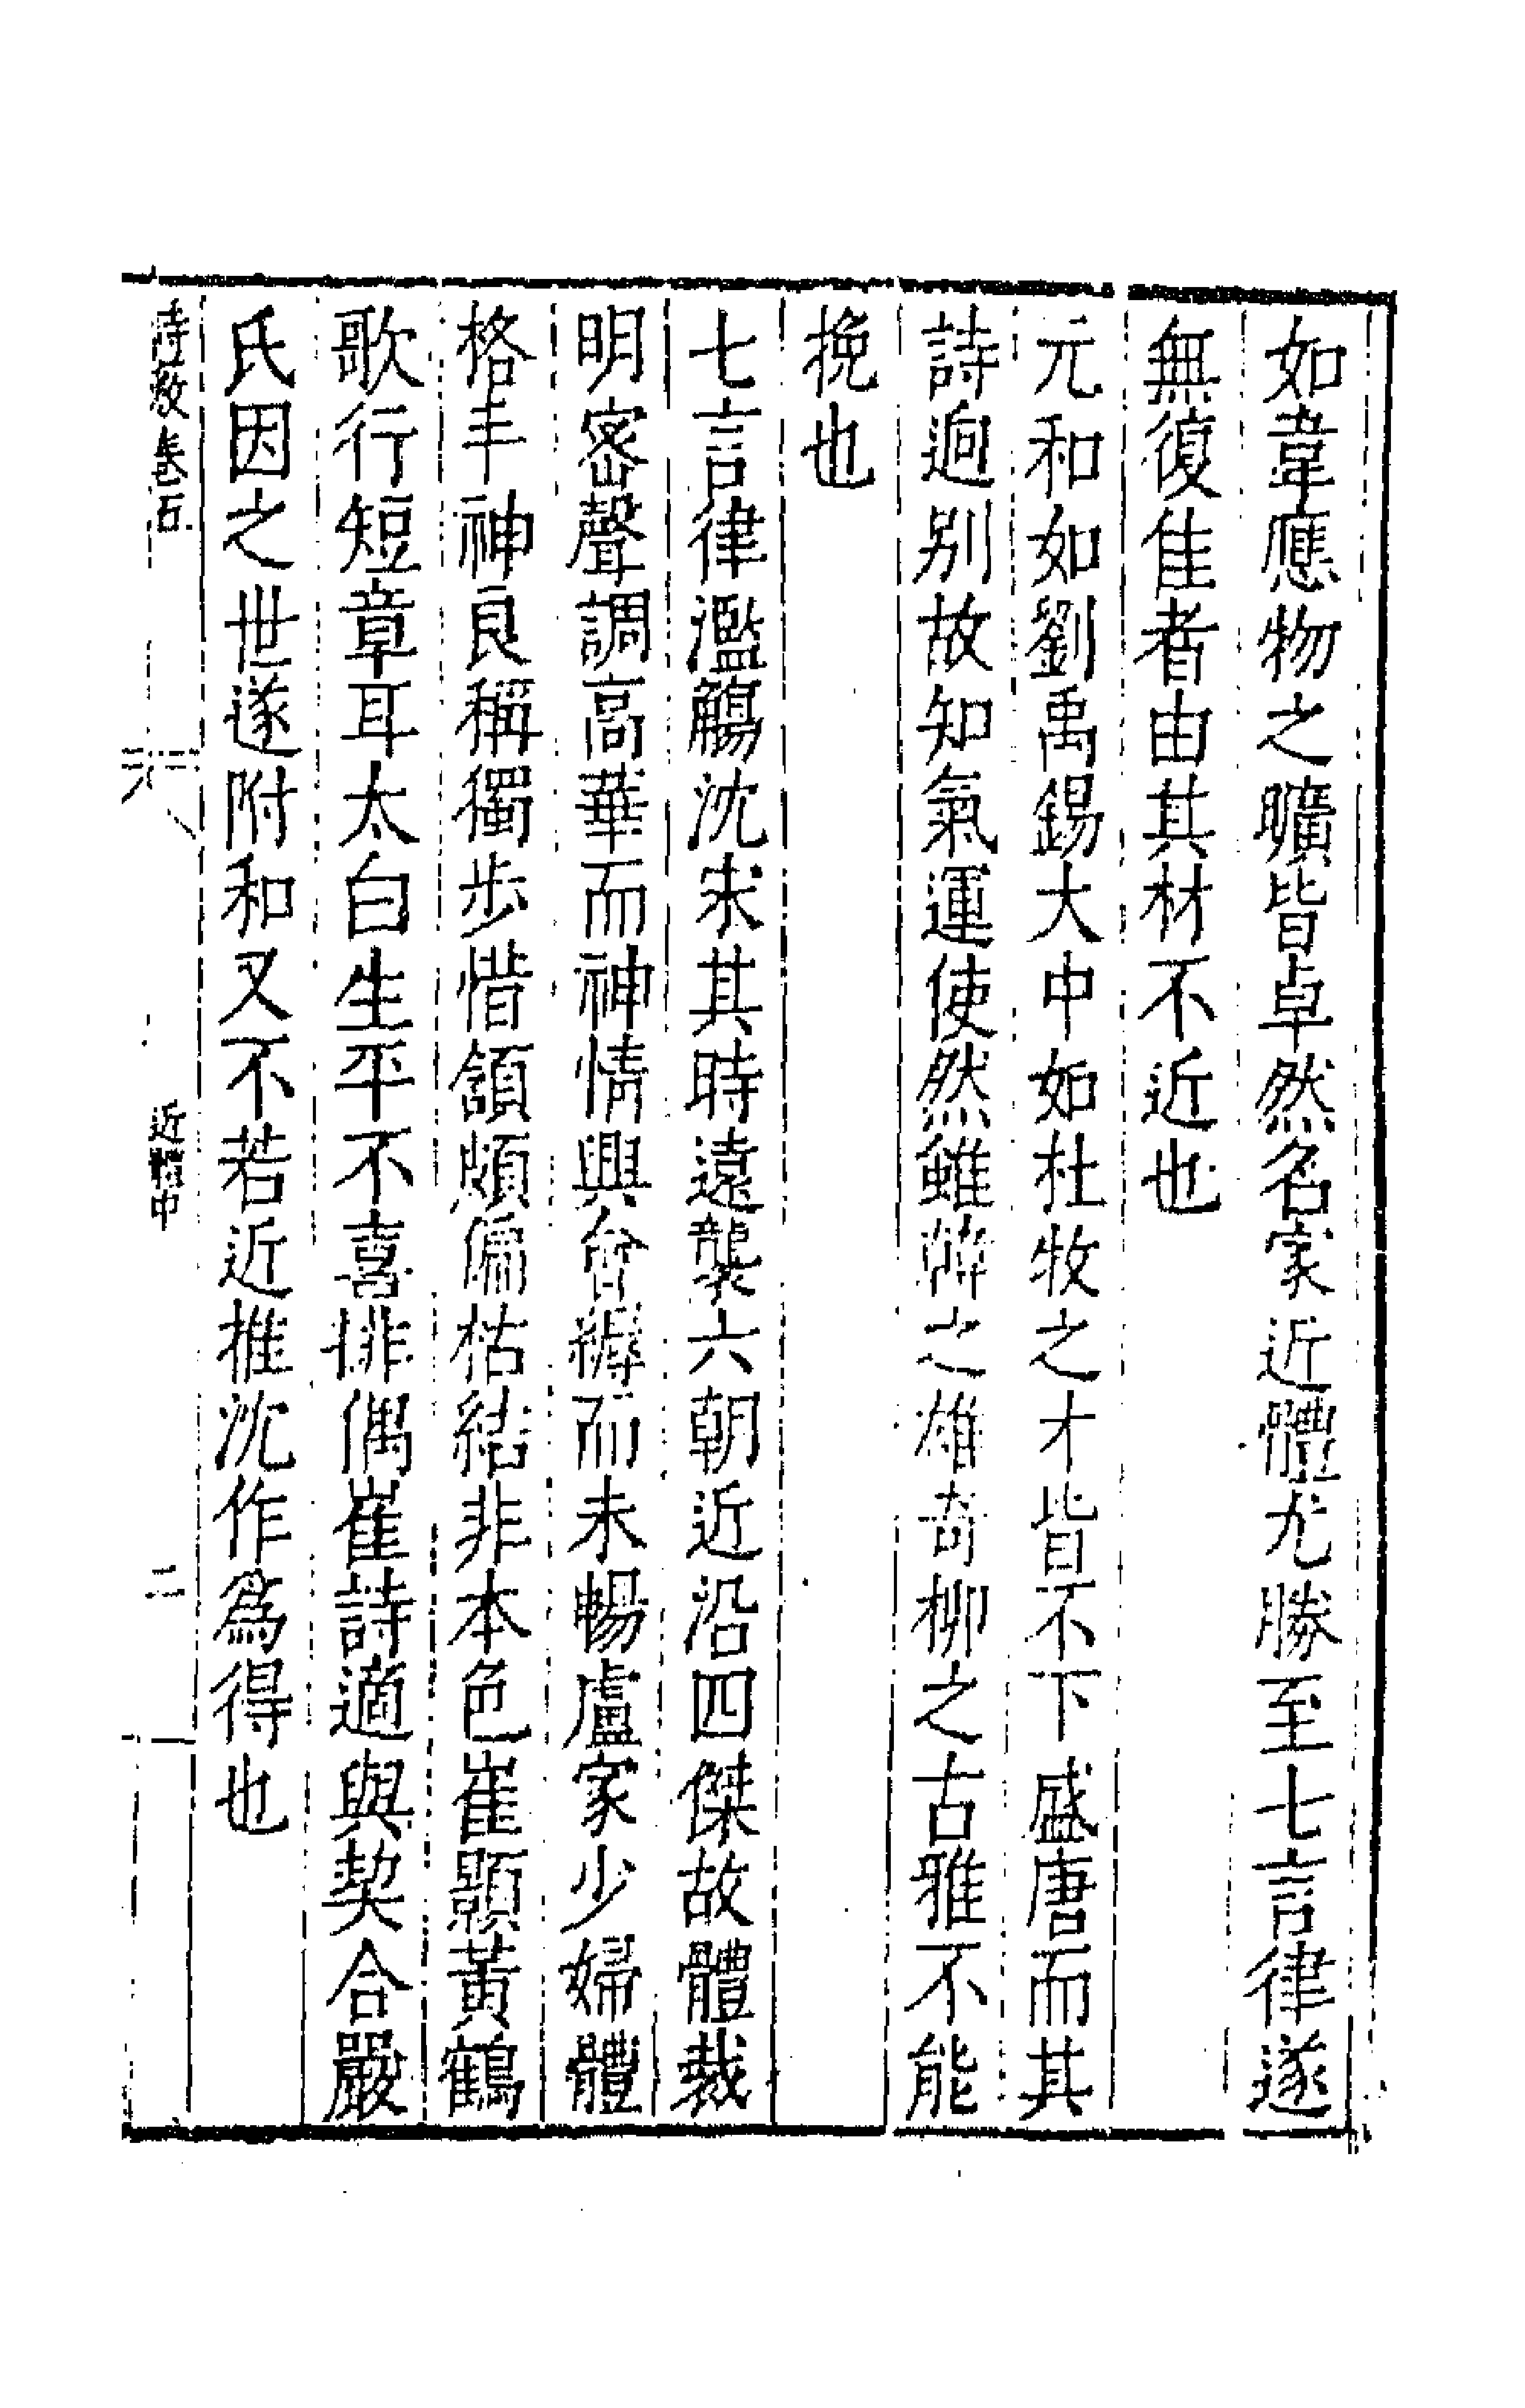 如韋應物之曠皆卓然名家近體尤勝至七言律遂
無復佳者由其材不近也
元和如劉禹錫大中如杜牧之才皆不下盛唐而其
詩迥别故知氣運使然雖韓之雄奇柳之古雅不能
挽也
七言律濫觴沈宋其時遠襲六朝近沿四傑故體裁
明密聲調高華而神情興會縟而未暢盧家少婦體
格丰神良稱獨步惜頷頗偏枯結非本色崔顥黃鶴
歌行短章耳太白生平不喜俳偶崔詩適與契合嚴
氏因之世遂附和又不若近推沈作爲得也
近體中
二